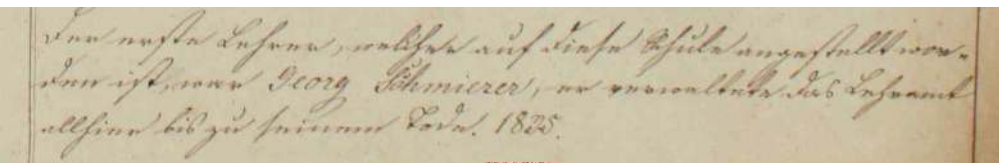 Der erste Lehrer, welcher auf diese Schule angestellt wor-
den ist, war Georg Schmierer, er verwaltete das Lehramt
allhier bis zu seinem Tode. 1835.